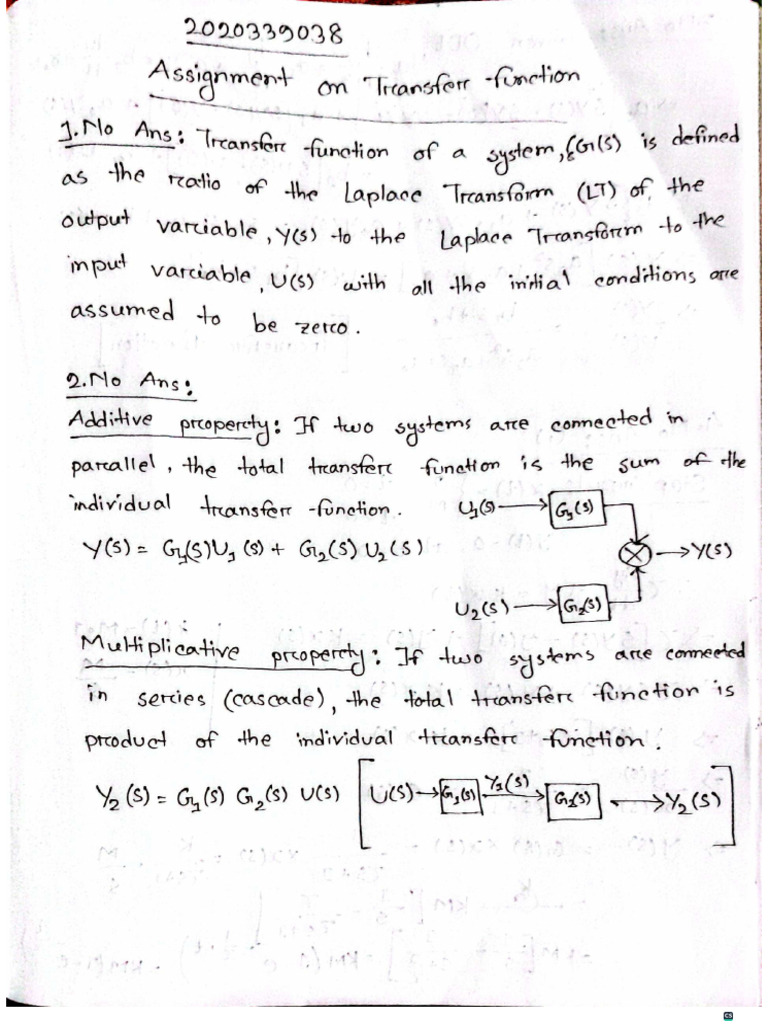 2020339038
Assignment on Transfer function
1. No Ans: Transfer function of a system, G(s) is defined
as the ratio of the Laplace Transform (LT) of the
output variable, Y(s) to the Laplace Transform to the
input variable, U(s) with all the initial conditions are
assumed to be zero.
2. No Ans:
Additive property: If two systems are connected in
parallel, the total transfer function is the sum of the
individual transfer function.
U₁(s) G₁(s)
Y(s) = G₁(s)U₁(s) + G₂(s) U₂(s)
Y(s)
U₂(s) G₂(s)
Multiplicative property: If two systems are connected
in series (cascade), the total transfer function is
product of the individual transfer function.
Y₂(s) = G₁(s) G₂(s) U(s) [U(s) → G₁(s) Y₁(s) → G₂(s) → Y₂(s)]
CS